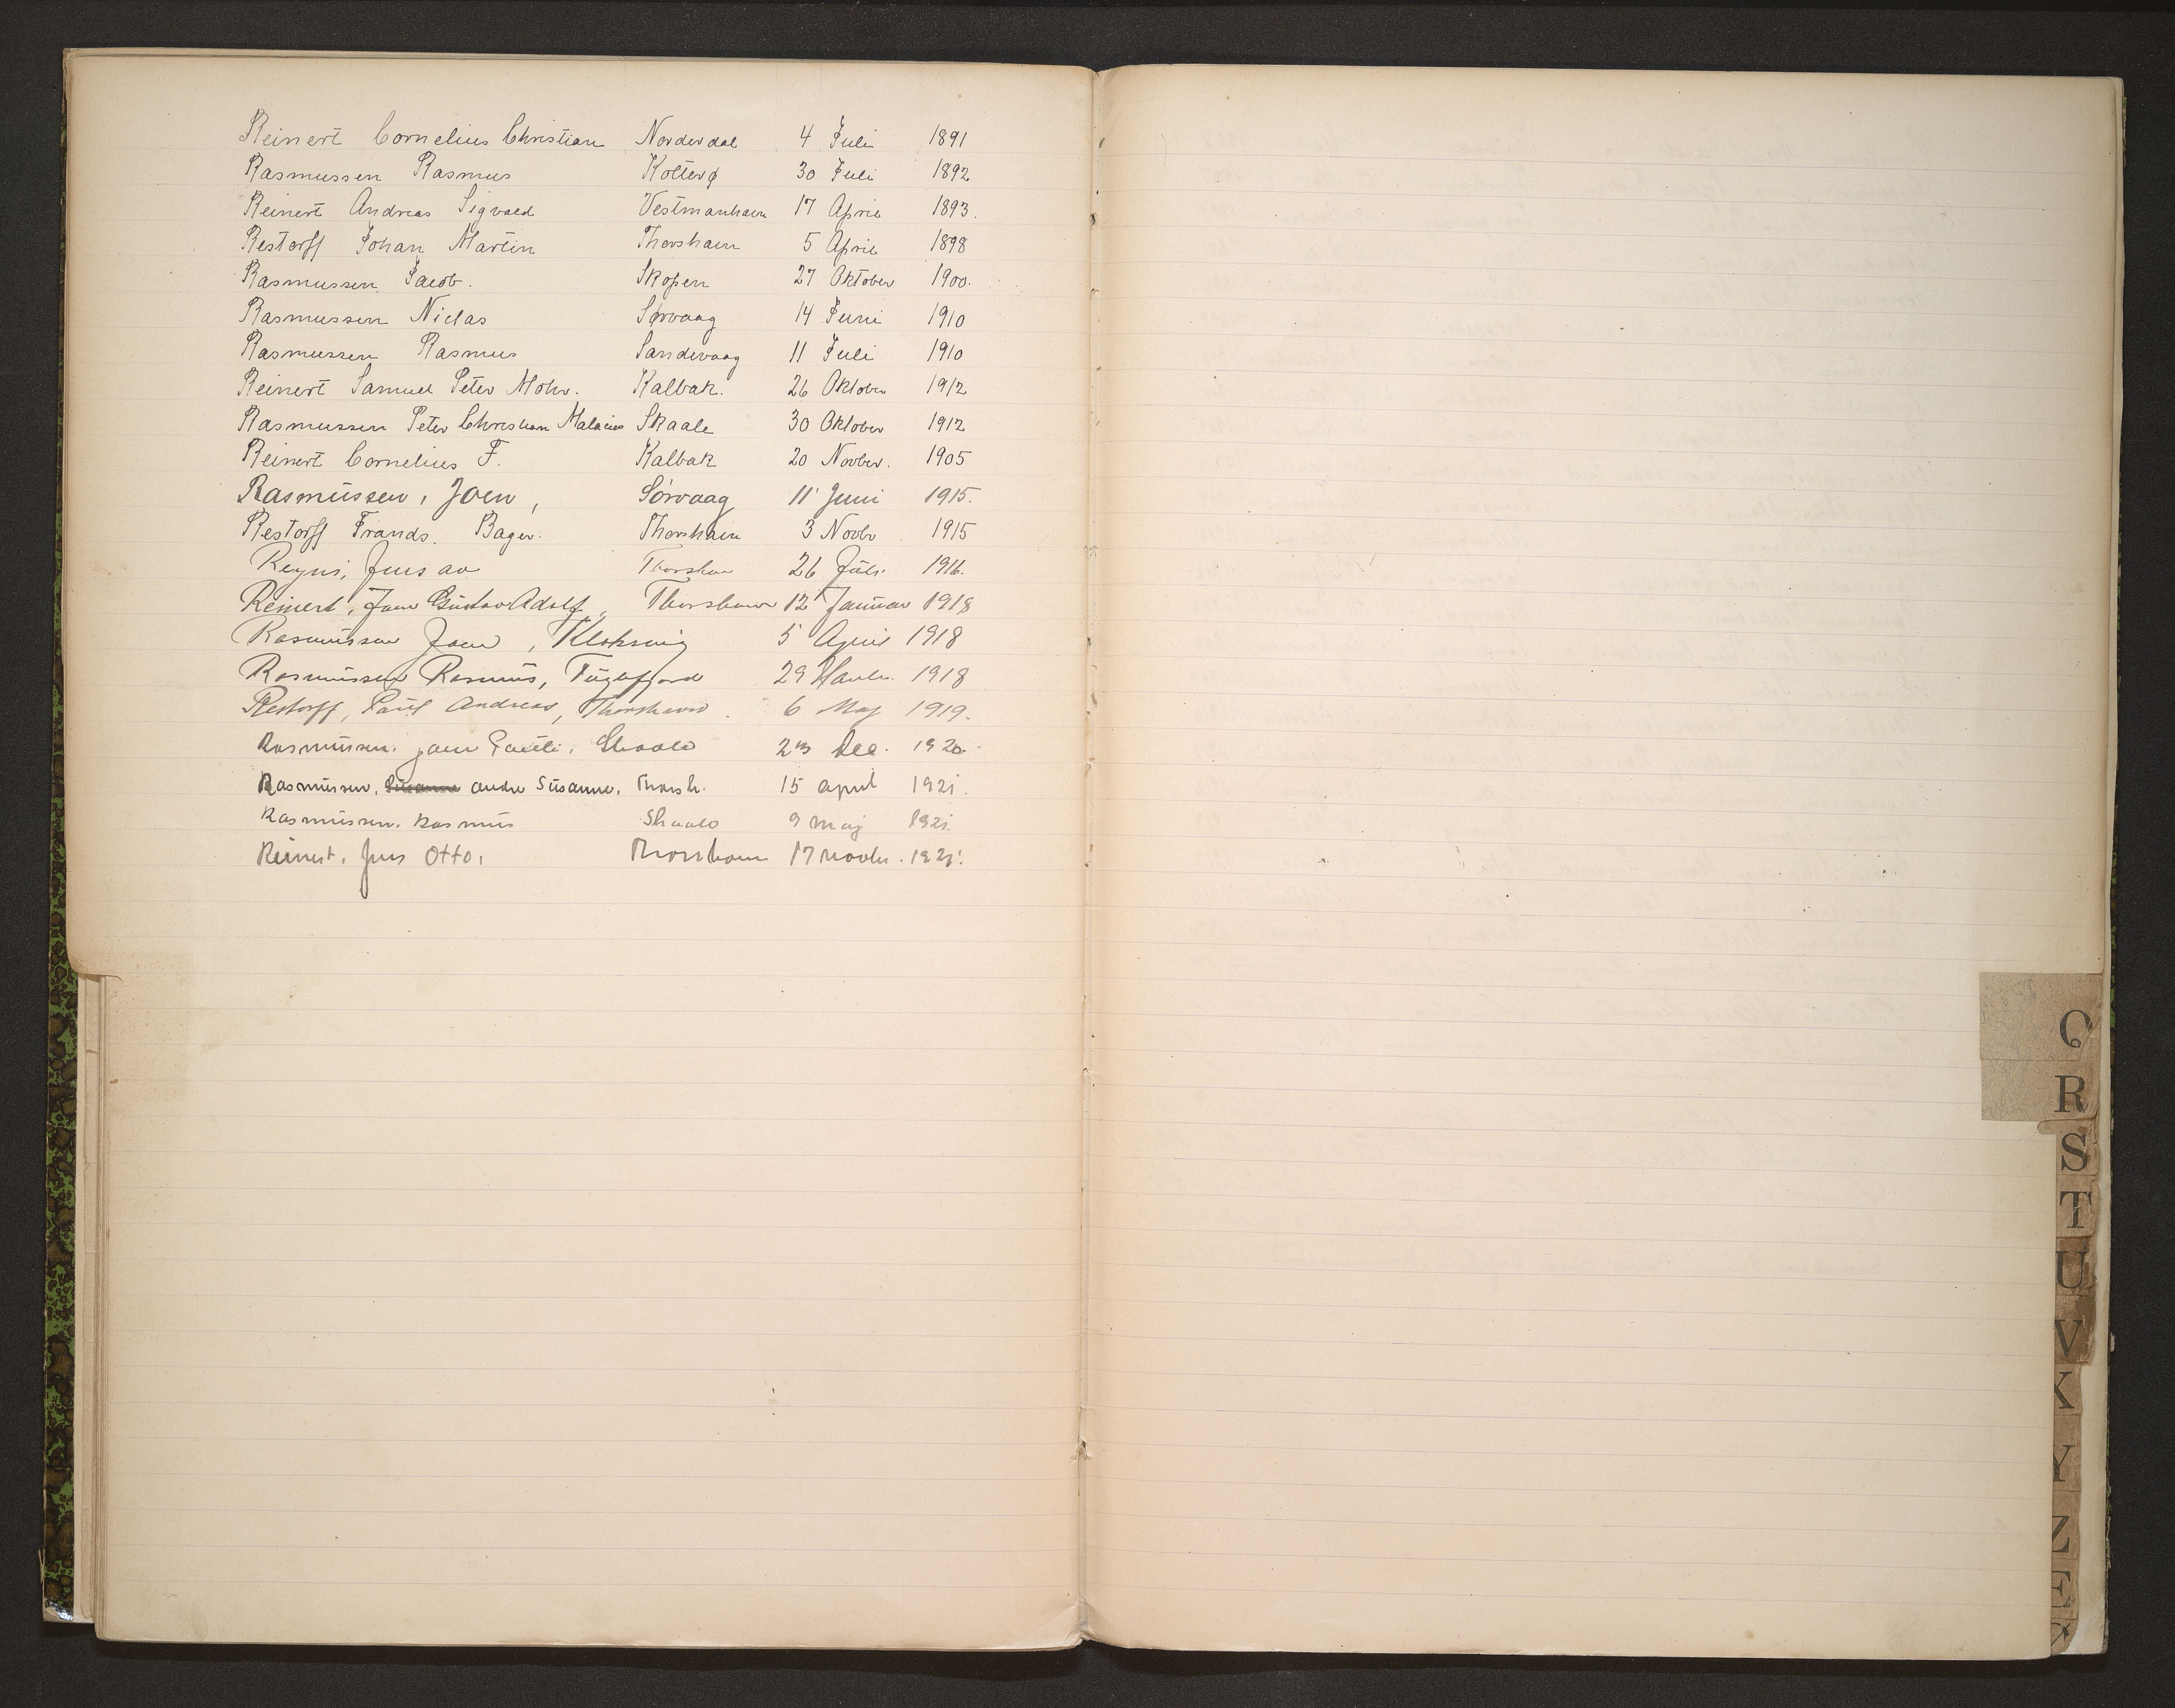 Reinert Cornelius Christian Norderdal 4 Juli 1891
Rasmussen Rasmus Kolterø 30 Juli 1892
Reinert Andreas Sigvald Vestmanhavn 17 April 1893.
Restorff Johan Martin Thorshavn 5 April 1898
Rasmussen Jacob. Skopen 27 Oktober 1900.
Rasmussen Niclas Sørvaag 14 Juni 1910
Rasmussen Rasmus Sandevaag 11 Juli 1910
Reinert Samuel Peter Mohr. Kalbak. 26 Oktober 1912
Rasmussen Peter Christian Malacius Skaale 30 Oktober 1912
Reinert Cornelius F. Kalbak 20 Novber. 1905
Rasmussen, Joen, Sörvaag 11 Juni 1915.
Restorff Frands. Bager. Thorshavn 3 Novbr 1915
Reyni, Jens av Thorshavn 26 Juli 1916.
Reinert, Gustav Adolf, Thorshavn 12 Januar 1918
Rasmussen Joen, Klaksvig 5 April 1918
Rasmussen Rasmus, Fuglefjord 29 1918
Restorff, Paul Andreas, Thorshavn. 6 Maj 1919.
Rasmussen, Pauli, Skaale Dec. 1920.
Rasmussen, Susanne, Thorsh. 15 april 1921.
Rasmussen, Rasmus Skaale 9 maj 1921.
Reinert, Jens Otto, Thorshavn 17 novbr. 1921.
Q
R
S
T
U
V
X
Y
Z
Æ
Ø